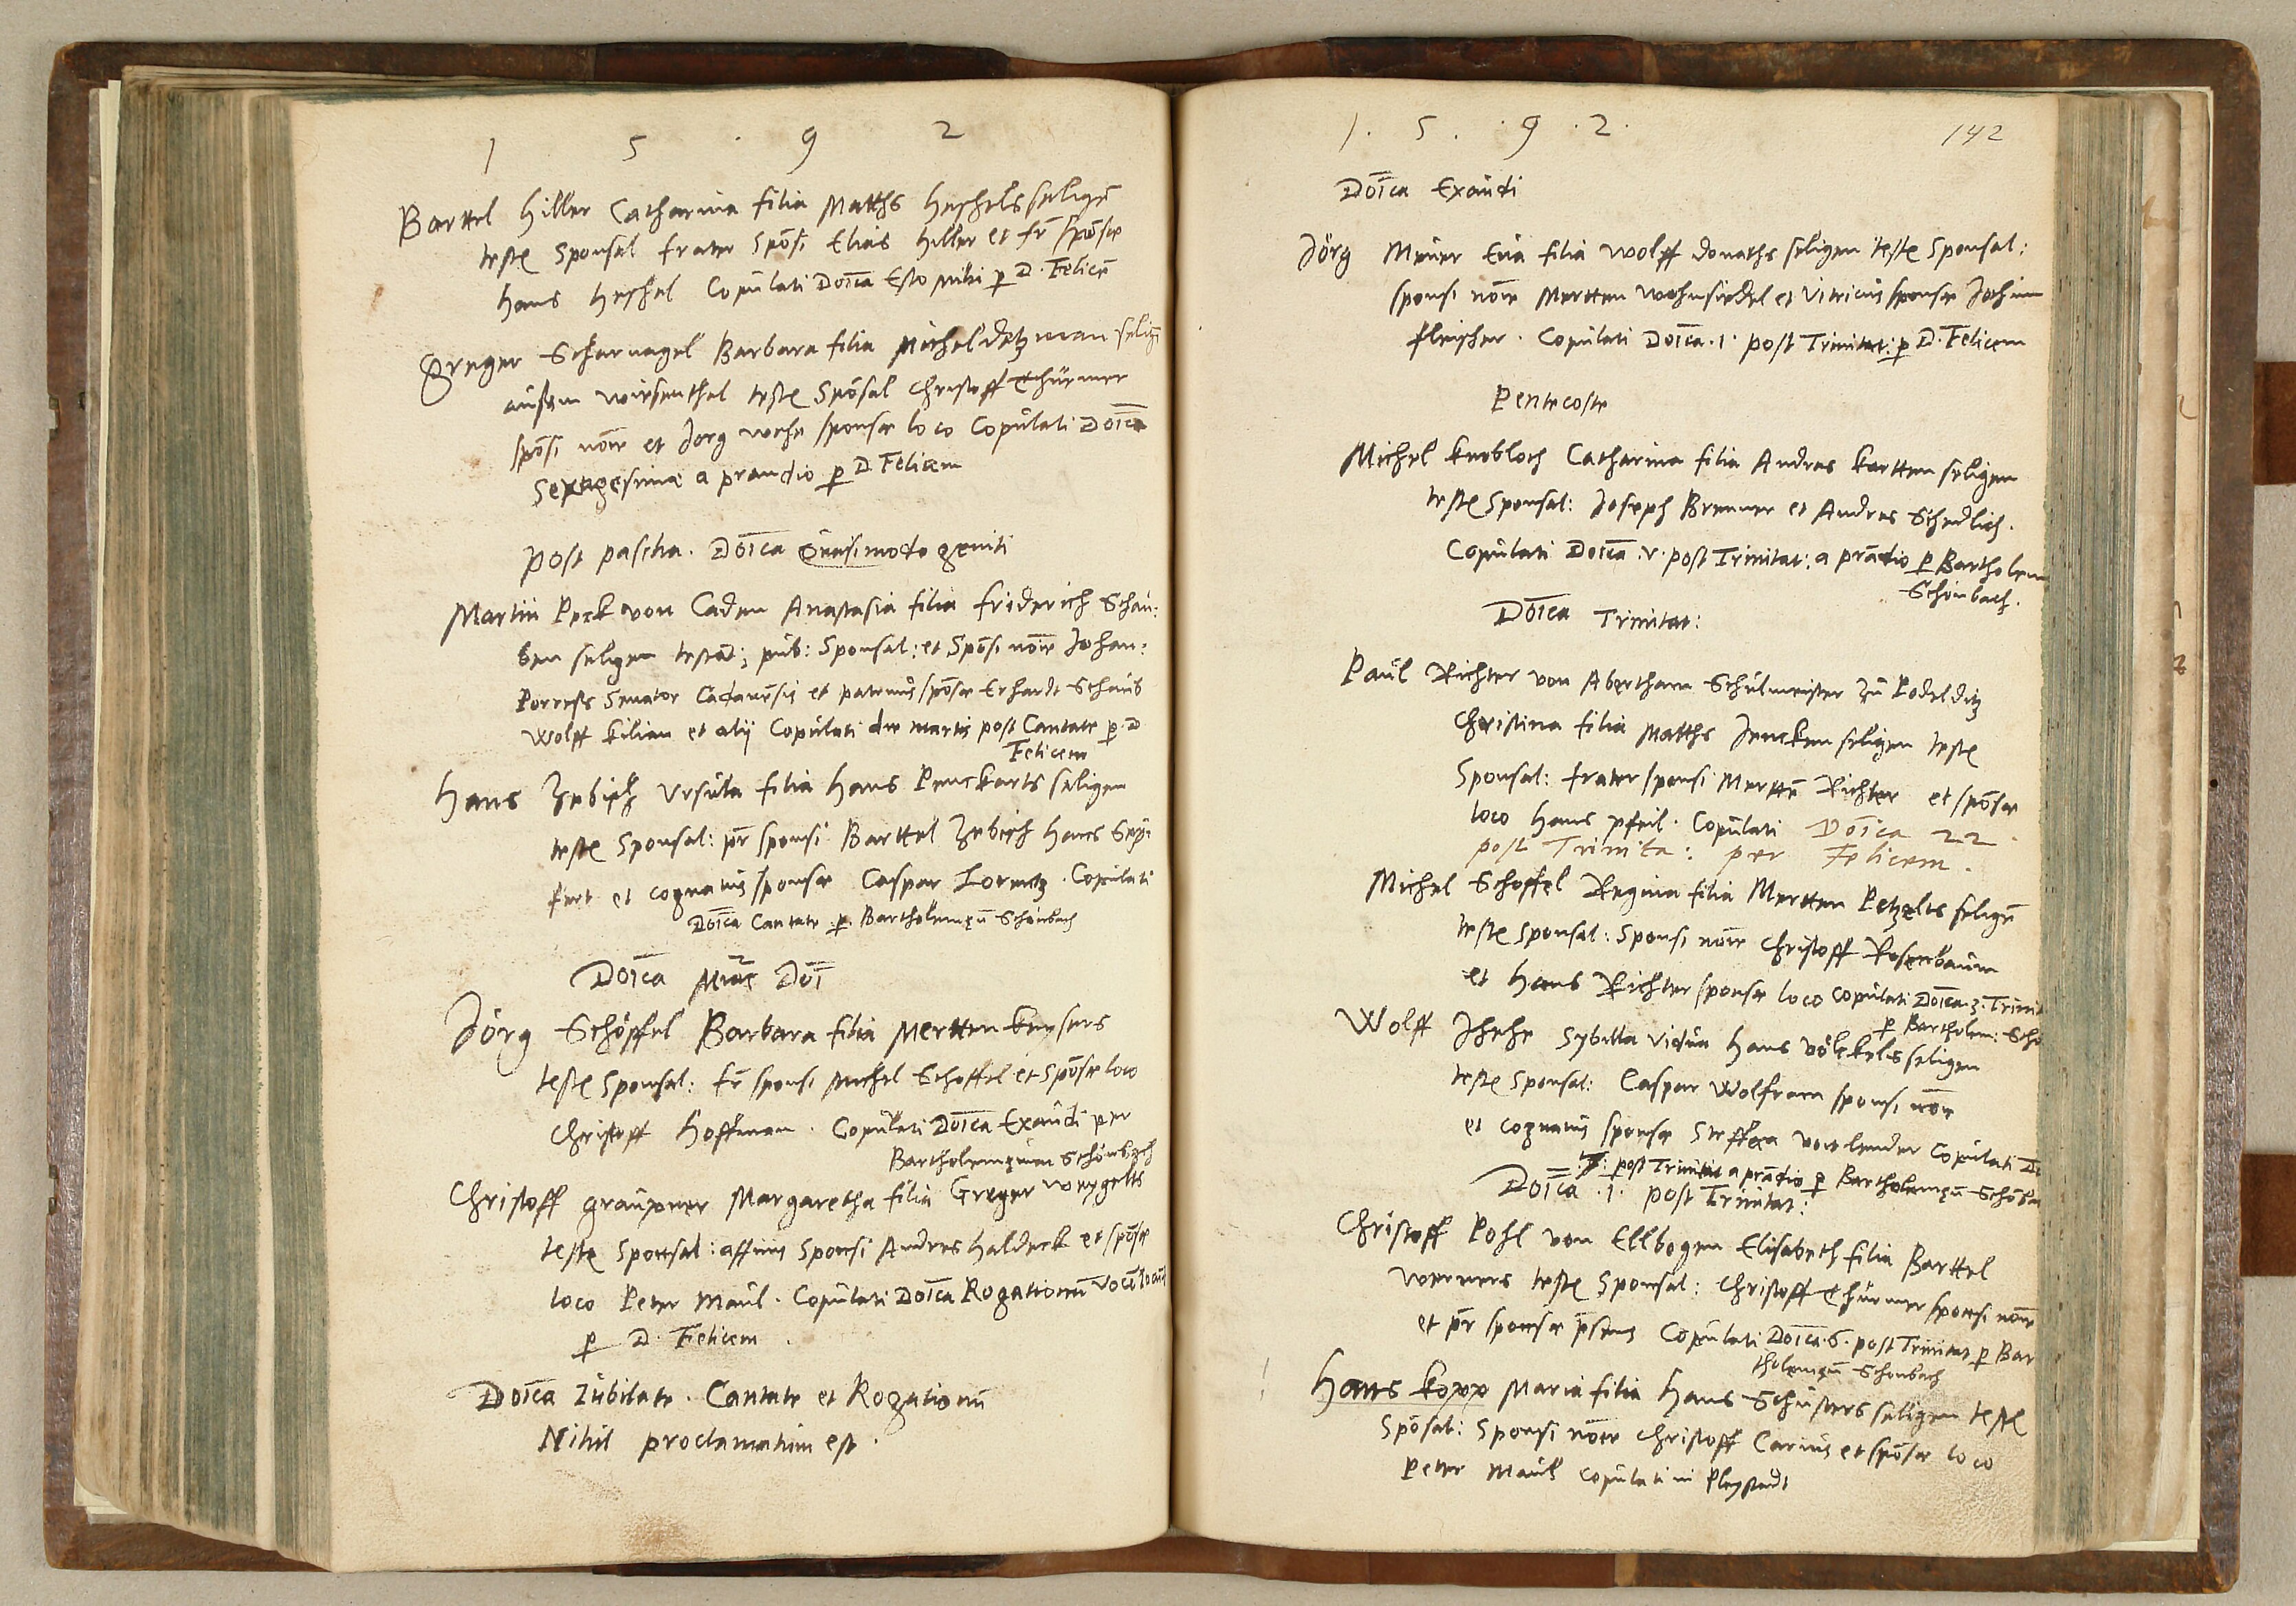 1 5 9 2
Barttel Hiller Catharina filia Matths Heschels seligē
teste Sponsal frater Spōsi Elias Hiller et fr̄ spōsae
Hans Heschel Copulati Doīca Esto mihi p D. Felicē
Greger Scharnagel Barbara filia Michel seligē
aussem wiesenthal teste Spōsal Christoff Thürmer
spōsi noīe et Jorg sponsae loco Copulati Doīca
Sexagesima a prandio p D Felicem
Post pascha. Doīca Quasimodo geniti
Martin Peck von Caden Anastasia filia Friderich Schau:
ben seligen pub: Sponsal: et Spōsi noīe Johan:
Senator Cadanēsis et patruus spōsae Erhardt Schaub
Wolff Kilian et alij Copulati die martis post Cantate p D
Felicem
Hans Zebisch Ursula filia Hans Penckarts seligen
teste Sponsal: pr̄ sponsi Barttel Zebisch Hans Seÿ:
fert et cognatus sponsae Caspar Lorentz. Copulati
Doīca Cantate p. Bartholemeū Schönbach
Doīca Mīae Doī
Jörg Schöffel Barbara filia Mertten Keysers
teste Sponsal: fr̄ sponsi Michel Schoffel et Spōsae loco
Christoff Hoffman. Copulati Doīca Exaudi per
Bartholemeum Schönbach
Christoff Graupner Margaretha filia Greger Weygelts
teste Sponsal: affinis Sponsi Andres Haldeck et spōsae
loco Peter Maul. Copulati Doīca Rogationū
p D. Felicem.
Doīca Jubilate. Cantate et Rogationū
Nihil proclamatum est.
1. 5. 9. 2. 142
Doīca Exaudi
Jörg Meier Eua filia Wolff Donaths seligen teste Sponsal:
sponsi noīe Mertten Wohnsiedel et Vitricus sponsae Jochim
Fleischer. Copulati Doīca. 1. post Trinitat: p D. Felicem
Pentecoste
Michel Knobloch Catharina filia Andres Kartten seligen
teste Sponsal: Joseph Brenner et Andres Schedlich.
Copulati Doīca. v. post Trinitat: a prādio p Bartholem
Schönbach.
Doīca Trinitat:
Paul Richter von Abertham Schulmeister zu Podelditz
Christina filia Matths Jencken seligen teste
Sponsal: frater sponsi Merttē Richter et spōsae
loco Hans Pfeil. Copulati Doīca 22.
post Trinita: per Felicem.
Michel Schoffel Regina filia Mertten Petzelts seligē
teste Sponsal: Sponsi noīe Christoff Rosenbaum
et Hans Richter sponsae loco copulati Doīca. 3. Trinit
p Bartholem: Schö
Wolff Jhehe Sybilla vidua Hans Völckels seligen
teste Sponsal: Caspar Wolfram sponsi noīe
et cognatus sponsae Steffan Copulati Do
post Trinitat a prādio p Bartholemeū Schöba
Doīca. 1. post Trinitat:
Christoff Pohl von Ellbogen Elisabeth filia Barttel
Werners teste Sponsal: Christoff Thürmer sponsi noīe
et pr̄ sponsae p̄sens Copulati Doīca. 6. post Trinitat p Bar
tholemeū Schonbach
Hans Kopp Maria filia Hans Schusters seligen teste
Spōsal: Sponsi noīe Christoff Carius et spōsae loco
Petter Maul copulati in Pleystadt